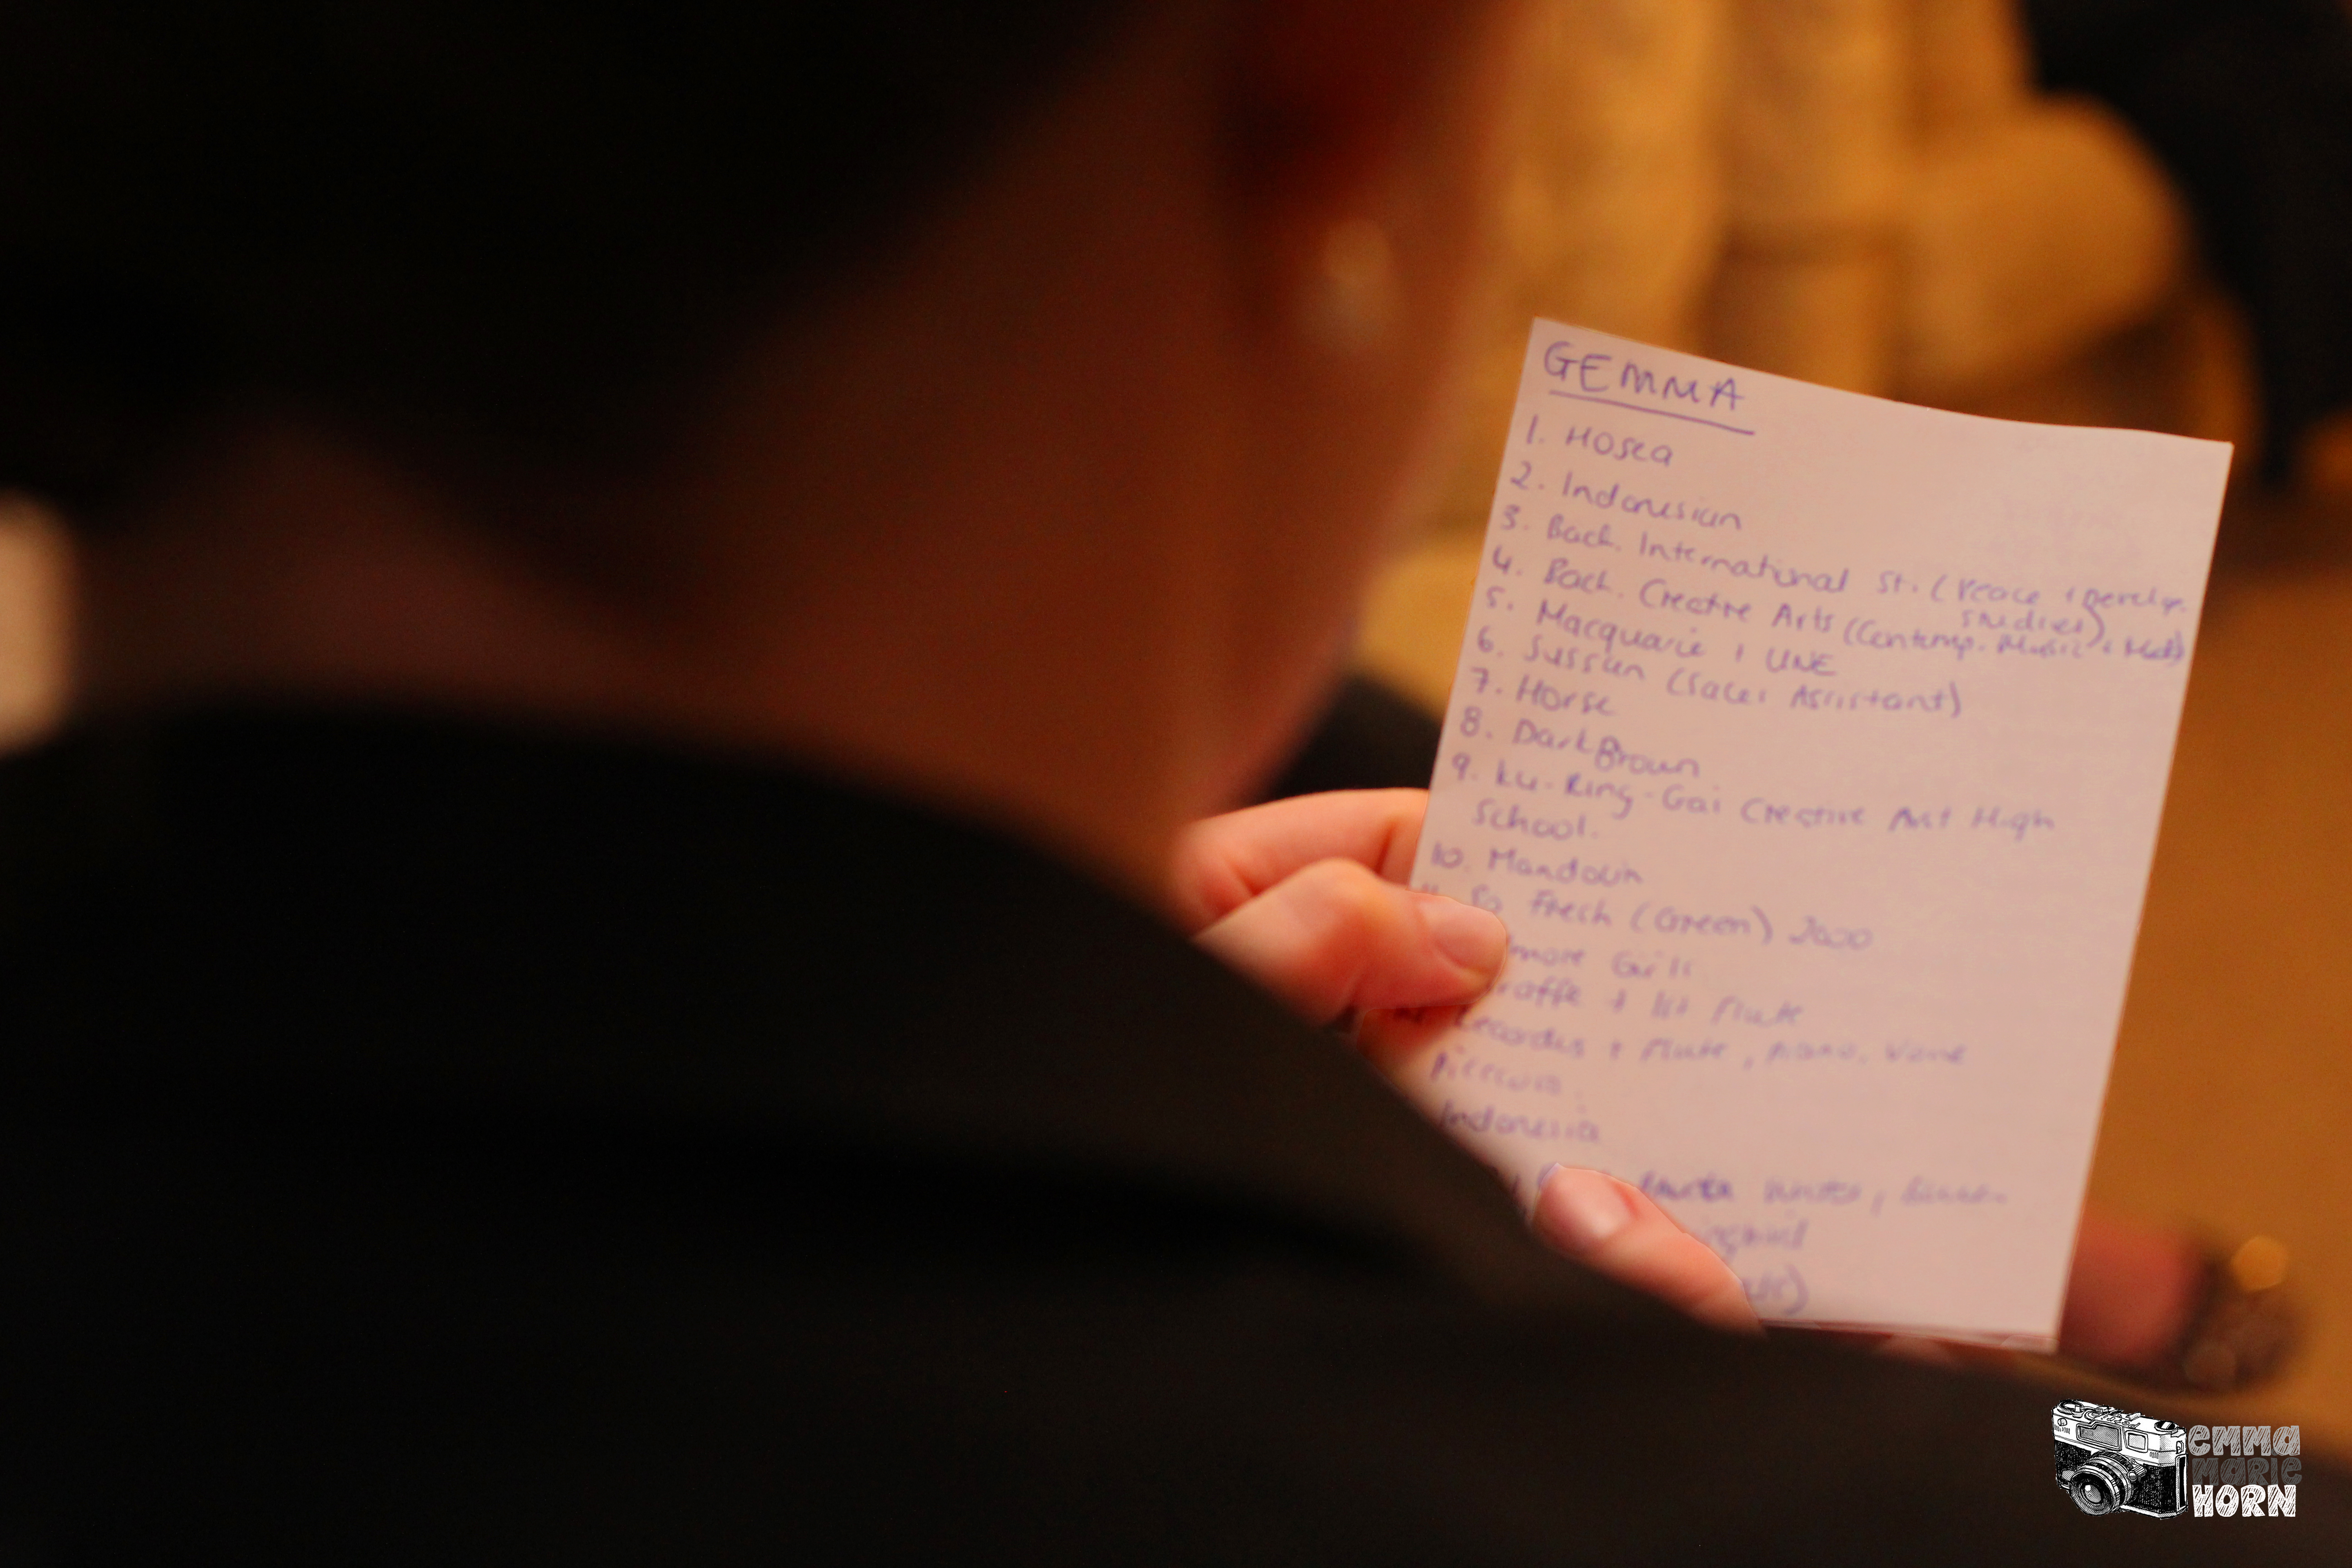 GEMMA
1. Hosea
2. Indonesian
3. Bach. International St. (Peace +
studies)
4. Bach. Creative Arts (Contemp. Music +
5. Macquarie + UNE
6. Sussan (Sales Assistant)
7. Horse
8. Dark Brown
9. Ku-Ring-Gai Creative Art High
School.
10. Mandolin
So Fresh (Green) 2000
more Girls
raffe + 1st Flute
+ Flute, piano,
Indonesia
EMMA
MARIE
HORN